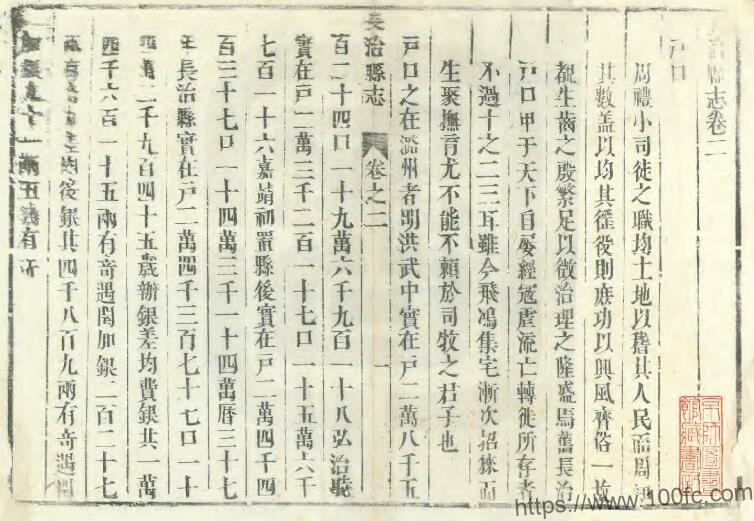 治縣志卷二
戸口
周禮小司徒之職均土地以稽其人民而周知
其數蓋以均其徭役則庶功以興風齊俗一故
觀生齒之殷繁足以徵治理之隆盛焉舊長治
戸口甲于天下自屢經寇虐流亡轉徙所存者
不過十之二三耳雖今飛鴻集宅漸次招徠而
生聚撫育尤不能不賴於司牧之君子也
戸口之在潞州者明洪武中實在戸二萬八千五
長治縣志 卷之二 一
百一十四口一十九萬六千九百一十八弘治
實在戸二萬三千二百一十七口一十五萬六千
七百一十六嘉靖初置縣後實在戸二萬四千四
百三十七口一十四萬三千一十四萬曆三十七
年長治縣實在戸二萬四千三百七十七口一十
四萬二千九百四十五歲辦銀差均費銀共一萬
四千六百一十五兩有奇遇閏加銀二百二十七
兩有奇役銀共四千八百九兩有奇遇閏
加銀九十一兩五錢有奇
京師圖書館藏書記
https://www.100fc.com